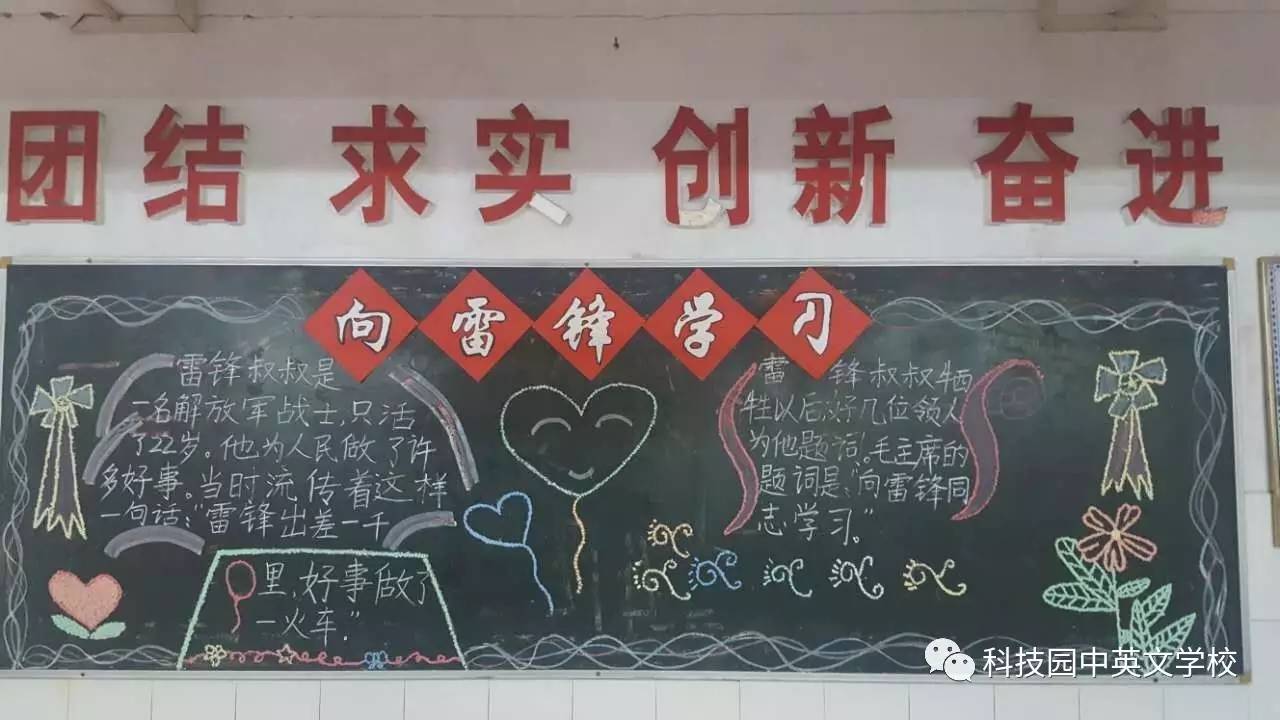 团结 求实 创新 奋进
向雷锋学习
雷锋叔叔是
一名解放军战士,只活
了22岁。他为人民做了许
多好事。当时流传着这样
一句话:“雷锋出差一千
里,好事做了
一火车.”
雷锋叔叔牺
牲以后,好几位领人
为他题词。毛主席的
题词是:“向雷锋同
志学习”。
科技园中英文学校